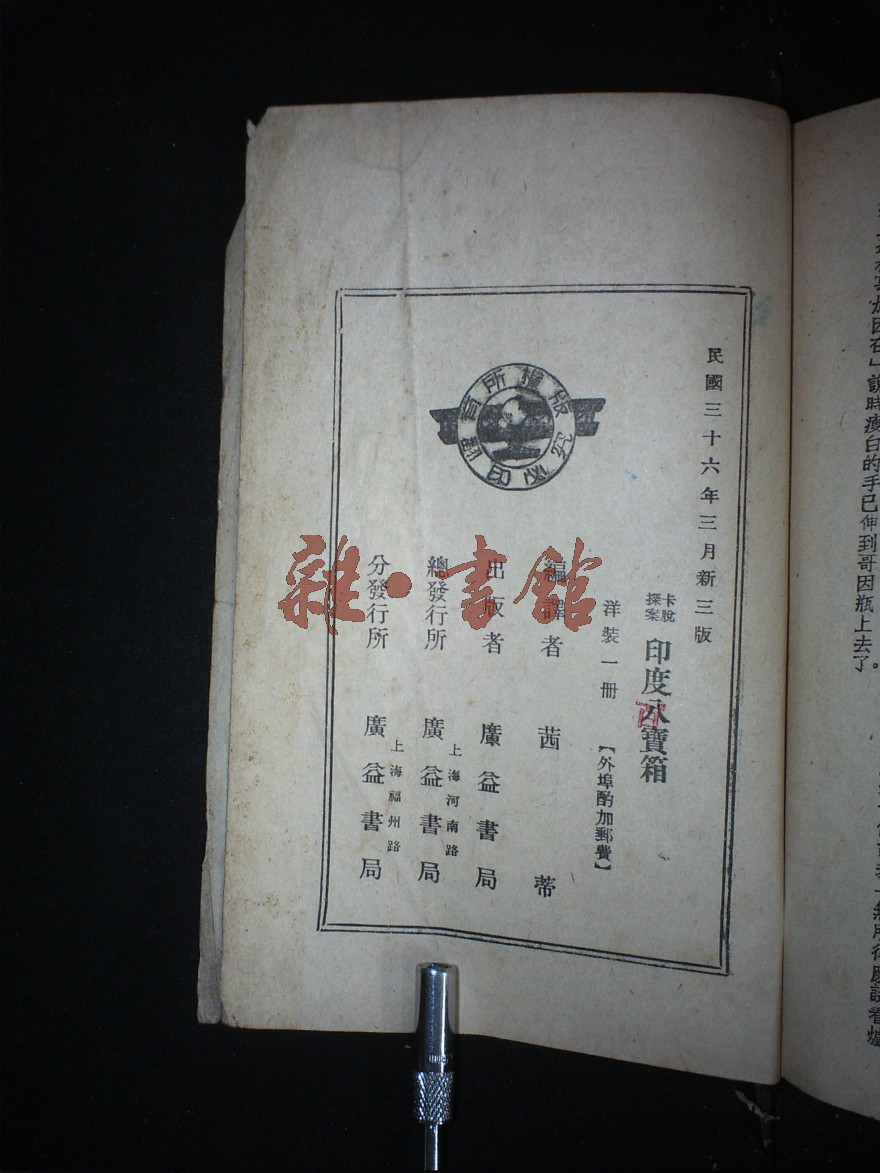 民國三十六年三月新三版
卡脫探案
印度八寶箱
洋裝一冊
【外埠酌加郵費】
編譯者 茜蒂
出版者 廣益書局
總發行所 上海河南路 廣益書局
分發行所 上海福州路 廣益書局
版權所有
翻印必究
雜·書館
說時瘦白的手已伸到哥因瓶上去了。